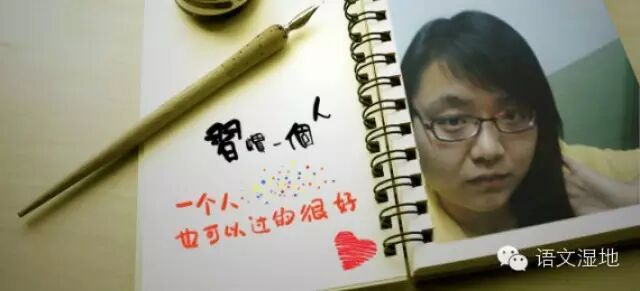 習慣一個人
一个人
也可以过的很好
语文湿地